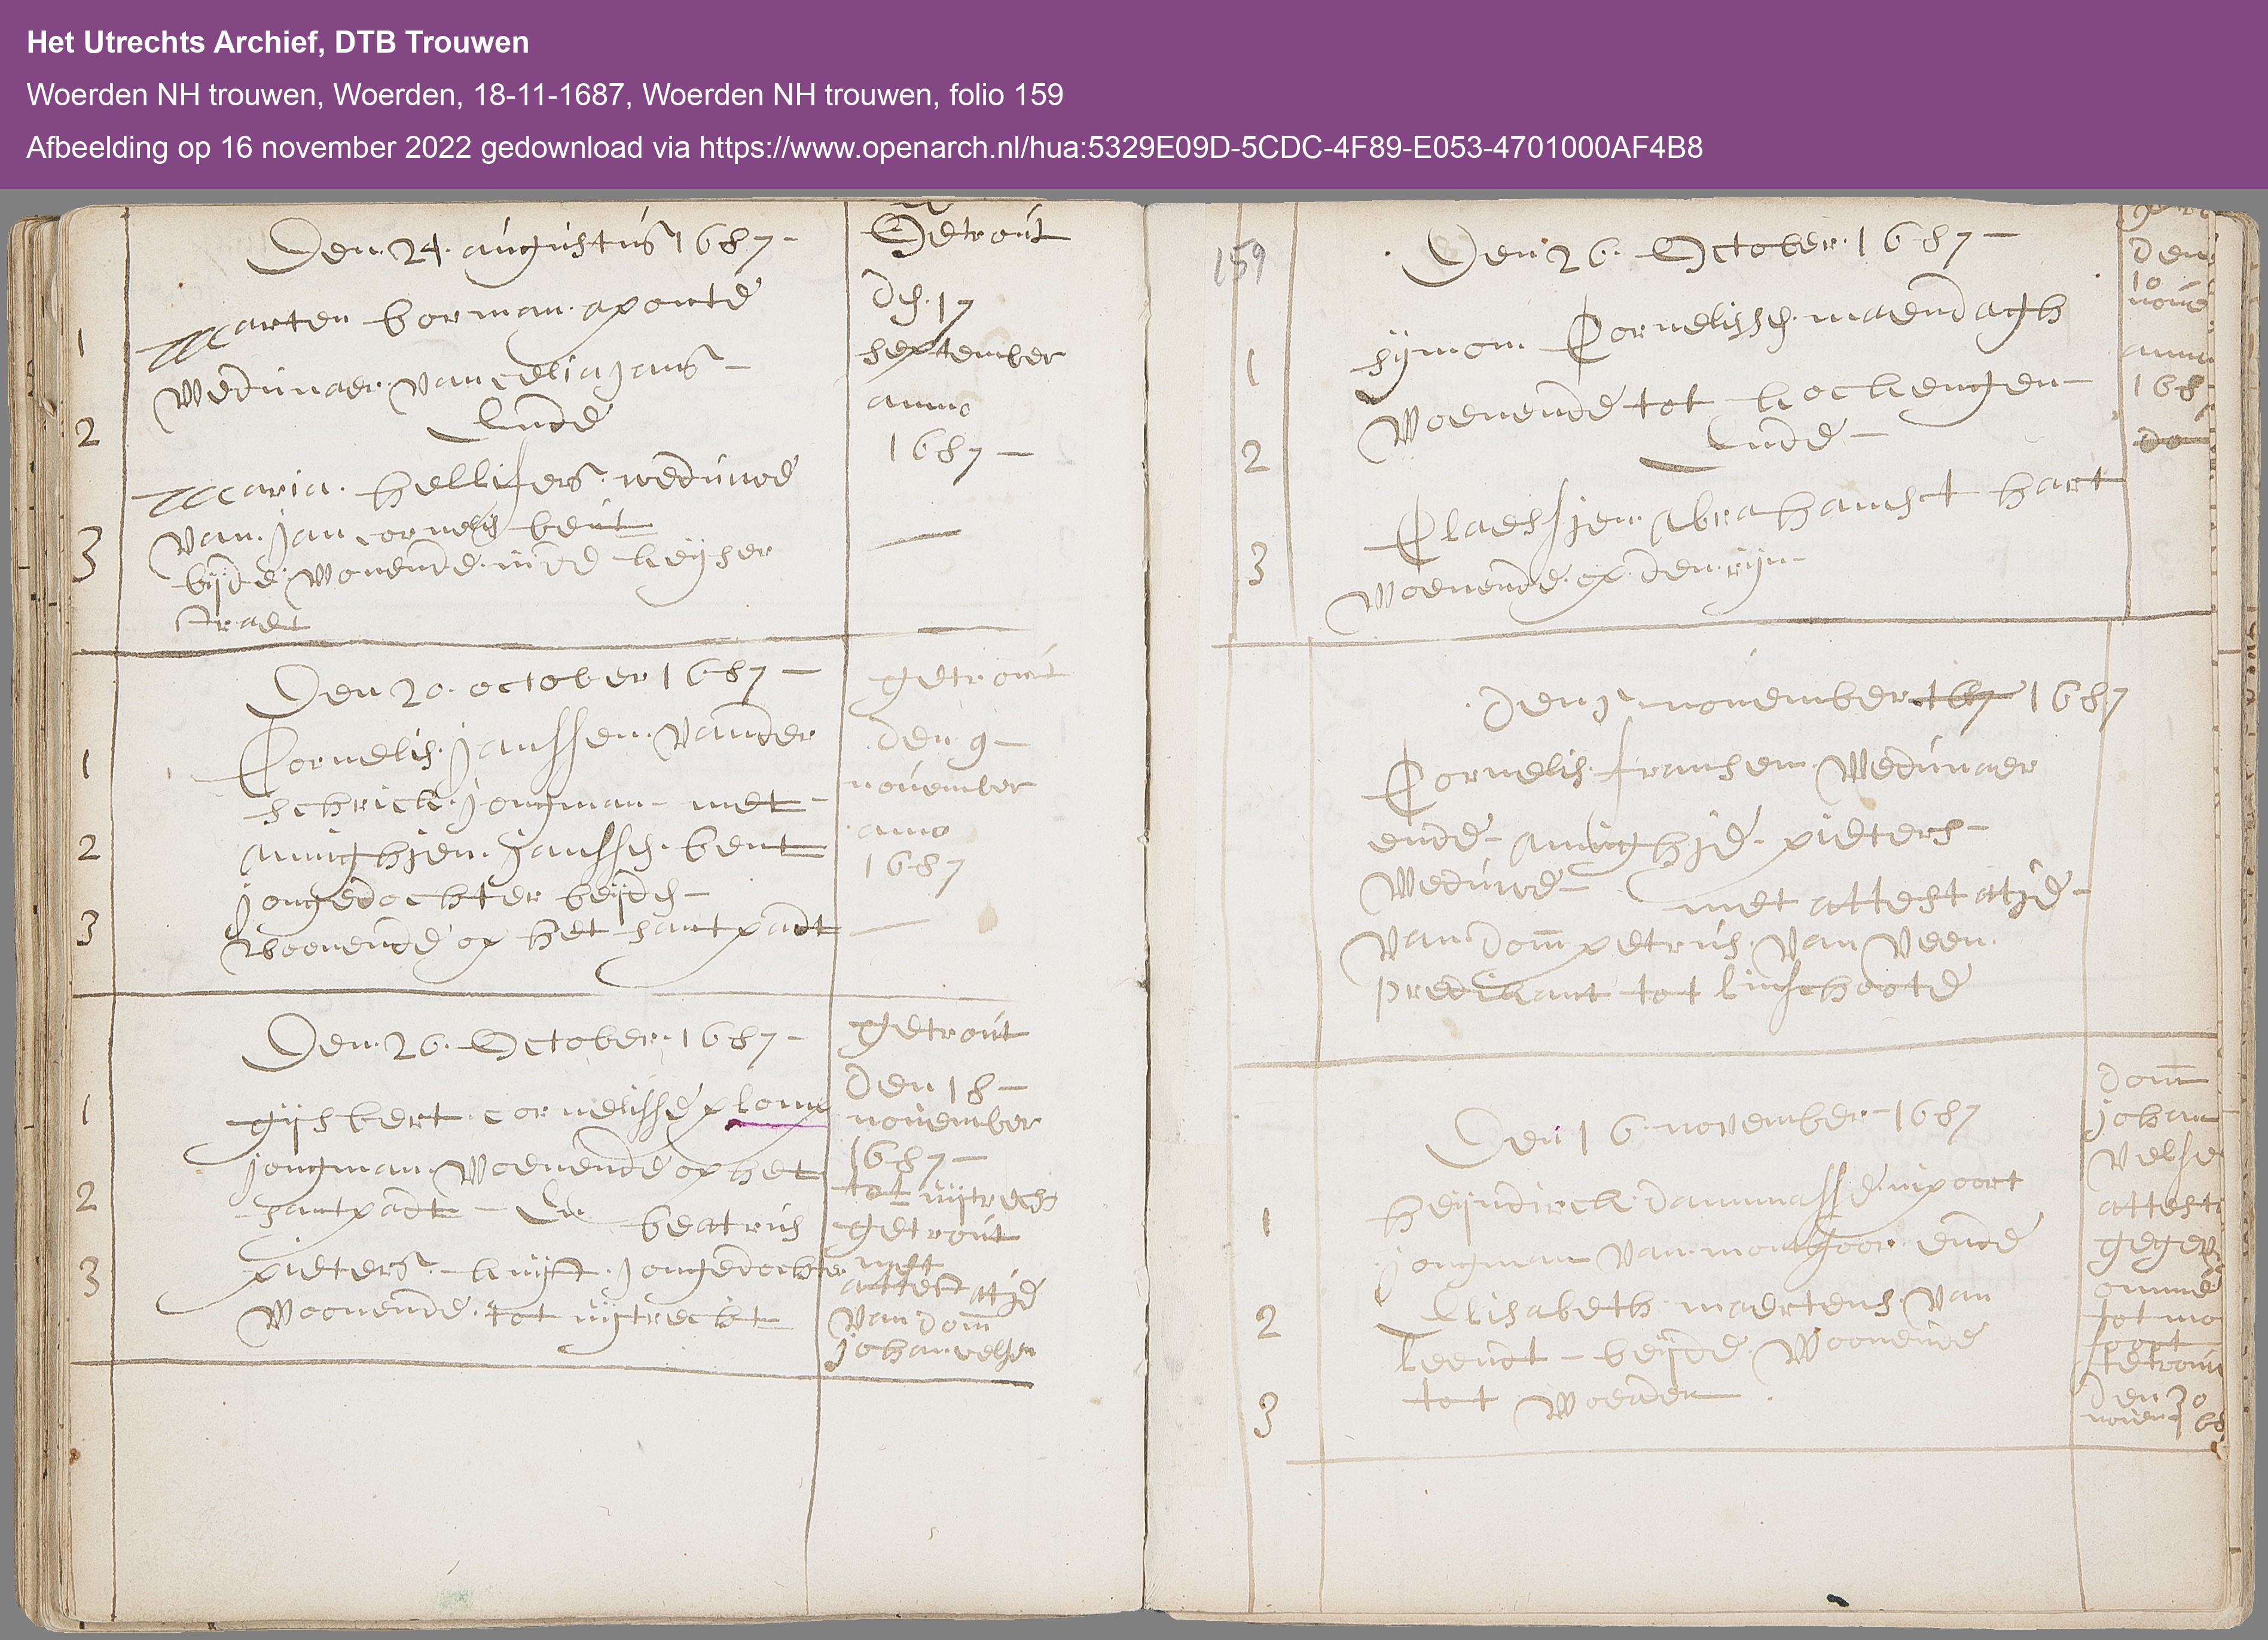 Het Utrechts Archief, DTB Trouwen
Woerden NH trouwen, Woerden, 18-11-1687, Woerden NH trouwen, folio 159
Afbeelding op 16 november 2022 gedownload via https://www.openarch.nl/hua:5329E09D-5CDC-4F89-E053-4701000AF4B8
Den 24 augustus 1687
1
Marten borman
wedunaer van celia jans
2
Ende
Maria weduwe
van jan cornelis bent
3
bijde wonende inde keyser
straet
Getrout
den 17
september
anno
1687
Den 20 october 1687
1
Cornelis janssen vander
schrick jongman met
2
anninghjen janssen bent
jongedochter beijde
3
woonende op het santpadt
getrout
den 9
november
anno
1687
Den 26 October 1687
1
gijsbert cornelisse plomp
jongman woenende op het
2
santpadt En beatris
3
pieters kuijst jongedochter
woonende tot uijtrecht
getrout
den 18
november
1687
tot uijtrecht
getrout
met
attestatje
van dom
johan velsen
159
Den 26 October 1687
1
sijmon Cornelissen maendagh
woenende tot kockengen
2
Ende
Claesjen Abrahams t hart
3
woenende op den rijn
den
10
nove
anno
168
do
Den 2 november 167 1687
Cornelis fransen wedunaer
ende anninghje pieters
weduwe met attestatje
van dom petrus van veen
predikant tot linschoote
Den 16 november 1687
1
heijndirck dammasse
jongman van montfoor ende
2
Elisabeth maertens van
leendt beijde woonende
3
tot woerden
dom
johan
velse
attest
gegev
omme
tot mo
foort
getrou
den 30
novembe